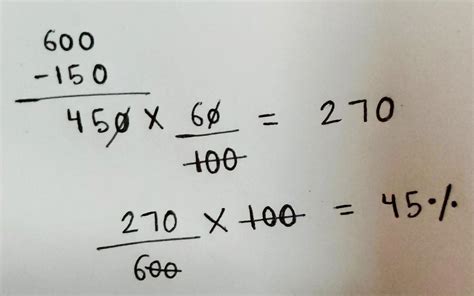 600
-150
450 × 60/100 = 270
270/600 × 100 = 45%